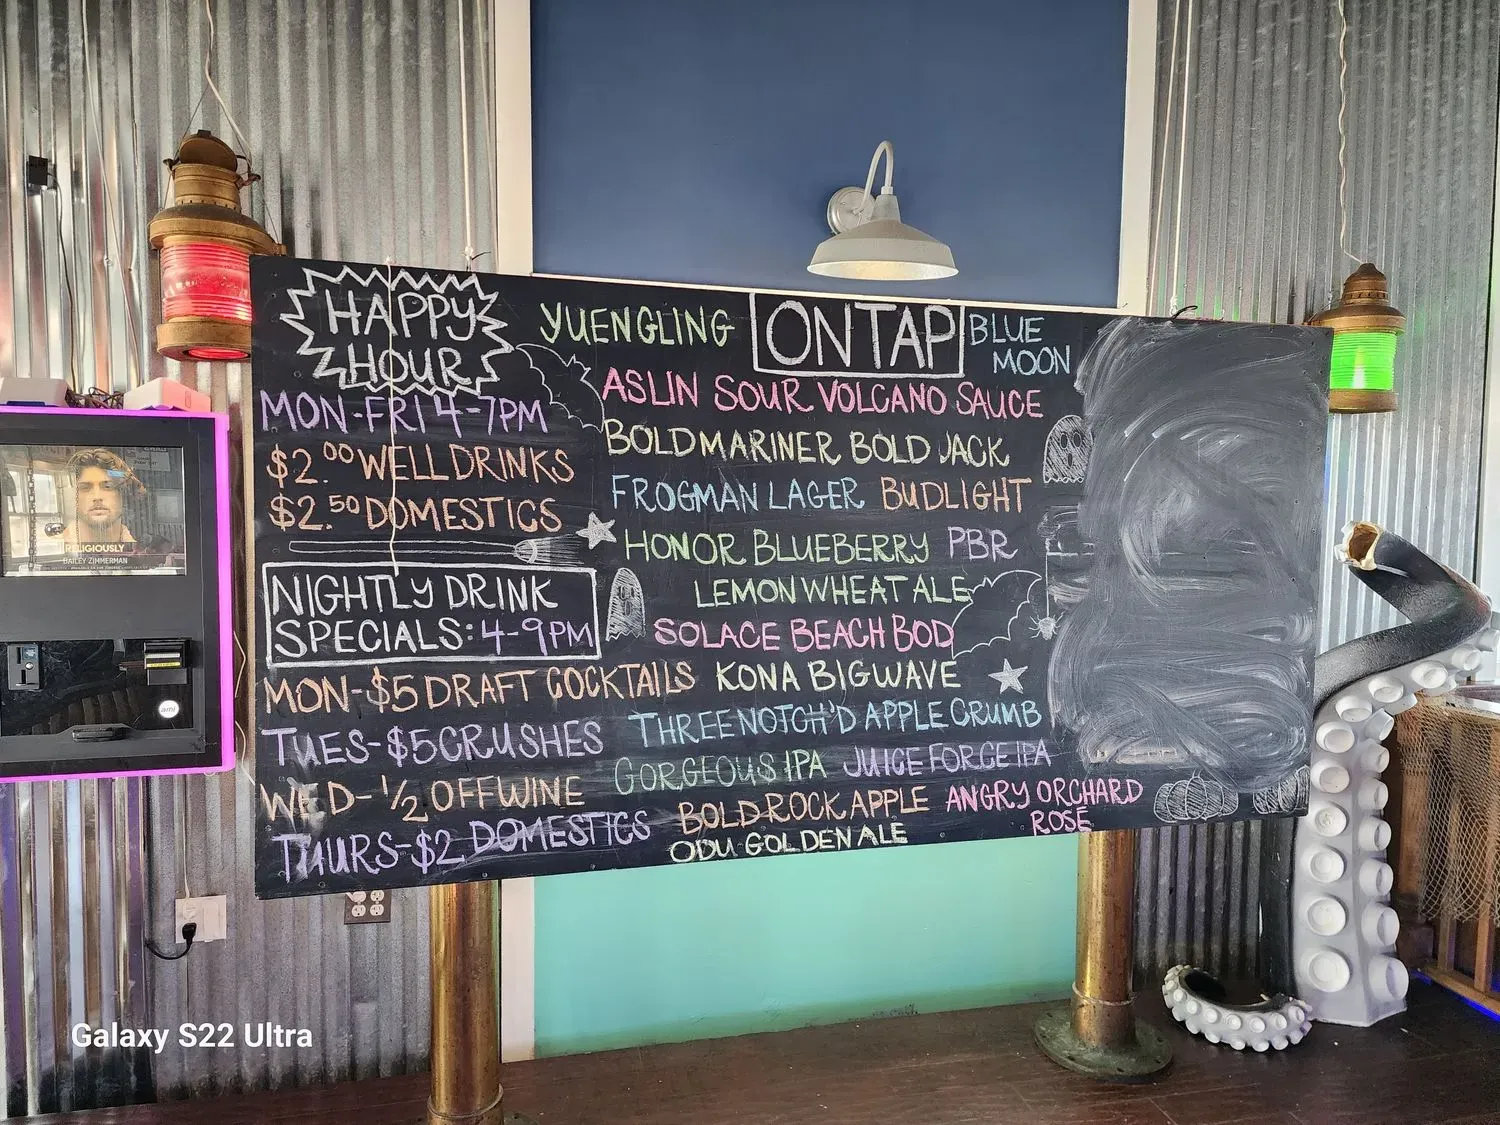 HAPPY
HOUR
MON-FRI 4-7PM
$2.00 WELL DRINKS
$2.50 DOMESTICS
NIGHTLY DRINK
SPECIALS: 4-9PM
MON-$5 DRAFT COCKTAILS
TUES-$5 CRUSHES
WED-1/2 OFF WINE
THURS-$2 DOMESTICS
ON TAP
YUENGLING
BLUE
MOON
ASLIN SOUR VOLCANO SAUCE
BOLD MARINER BOLD JACK
FROGMAN LAGER BUDLIGHT
HONOR BLUEBERRY PBR
LEMON WHEAT ALE
SOLACE BEACH BOD
KONA BIG WAVE
THREE NOTCH'D APPLE CRUMB
GORGEOUS IPA JUICE FORCE IPA
BOLD ROCK APPLE ANGRY ORCHARD
ROSÉ
ODU GOLDEN ALE
RELIGIOUSLY
BAILEY ZIMMERMAN
ami
Galaxy S22 Ultra